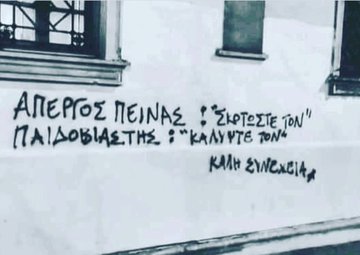 ΑΠΕΡΓΟΣ ΠΕΙΝΑΣ : "ΣΚΟΤΩΣΤΕ ΤΟΝ"
ΠΑΙΔΟΒΙΑΣΤΗΣ : "ΚΑΛΥΨΤΕ ΤΟΝ"
ΚΑΛΗ ΣΥΝΕΧΕΙΑ